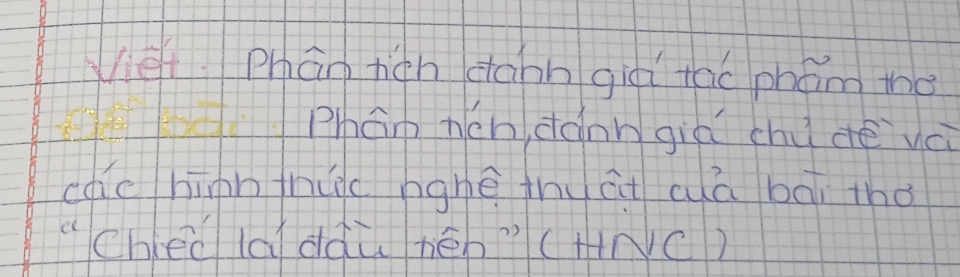 Viết. Phân tích đánh giá tác phẩm thơ
Đề bài: Phân tích, đánh giá chủ đề và
các hình thức nghệ thuật của bài thơ
"Chiếc lá đầu tiên" (HNC)